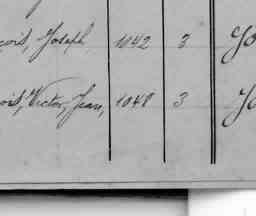 çois, Joseph, 1042 3 Jo
çois, Victor, Jean, 1048 3 Jo